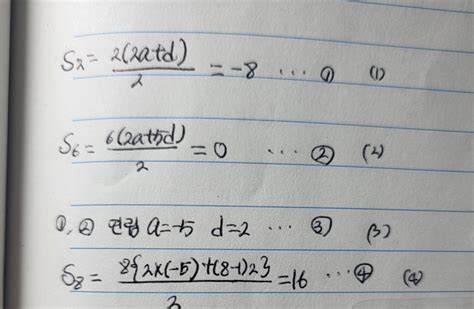 S₂ = 2(2a+d)/2 = -8 ... ① (1)
S₆ = 6(2a+5d)/2 = 0 ... ② (2)
①, ② 연립 a=-5 d=2 ... ③ (3)
S₈ = 8{2×(-5)+(8-1)2}/2 = 16 ... ④ (4)